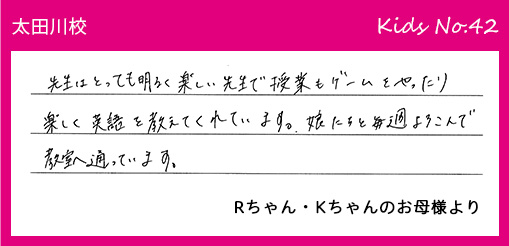 太田川校
Kids No.42
先生はとっても明るく楽しい先生で授業もゲームをやったり
楽しく英語を教えてくれています。娘たちも毎週よろこんで
教室へ通っています。
Rちゃん・Kちゃんのお母様より